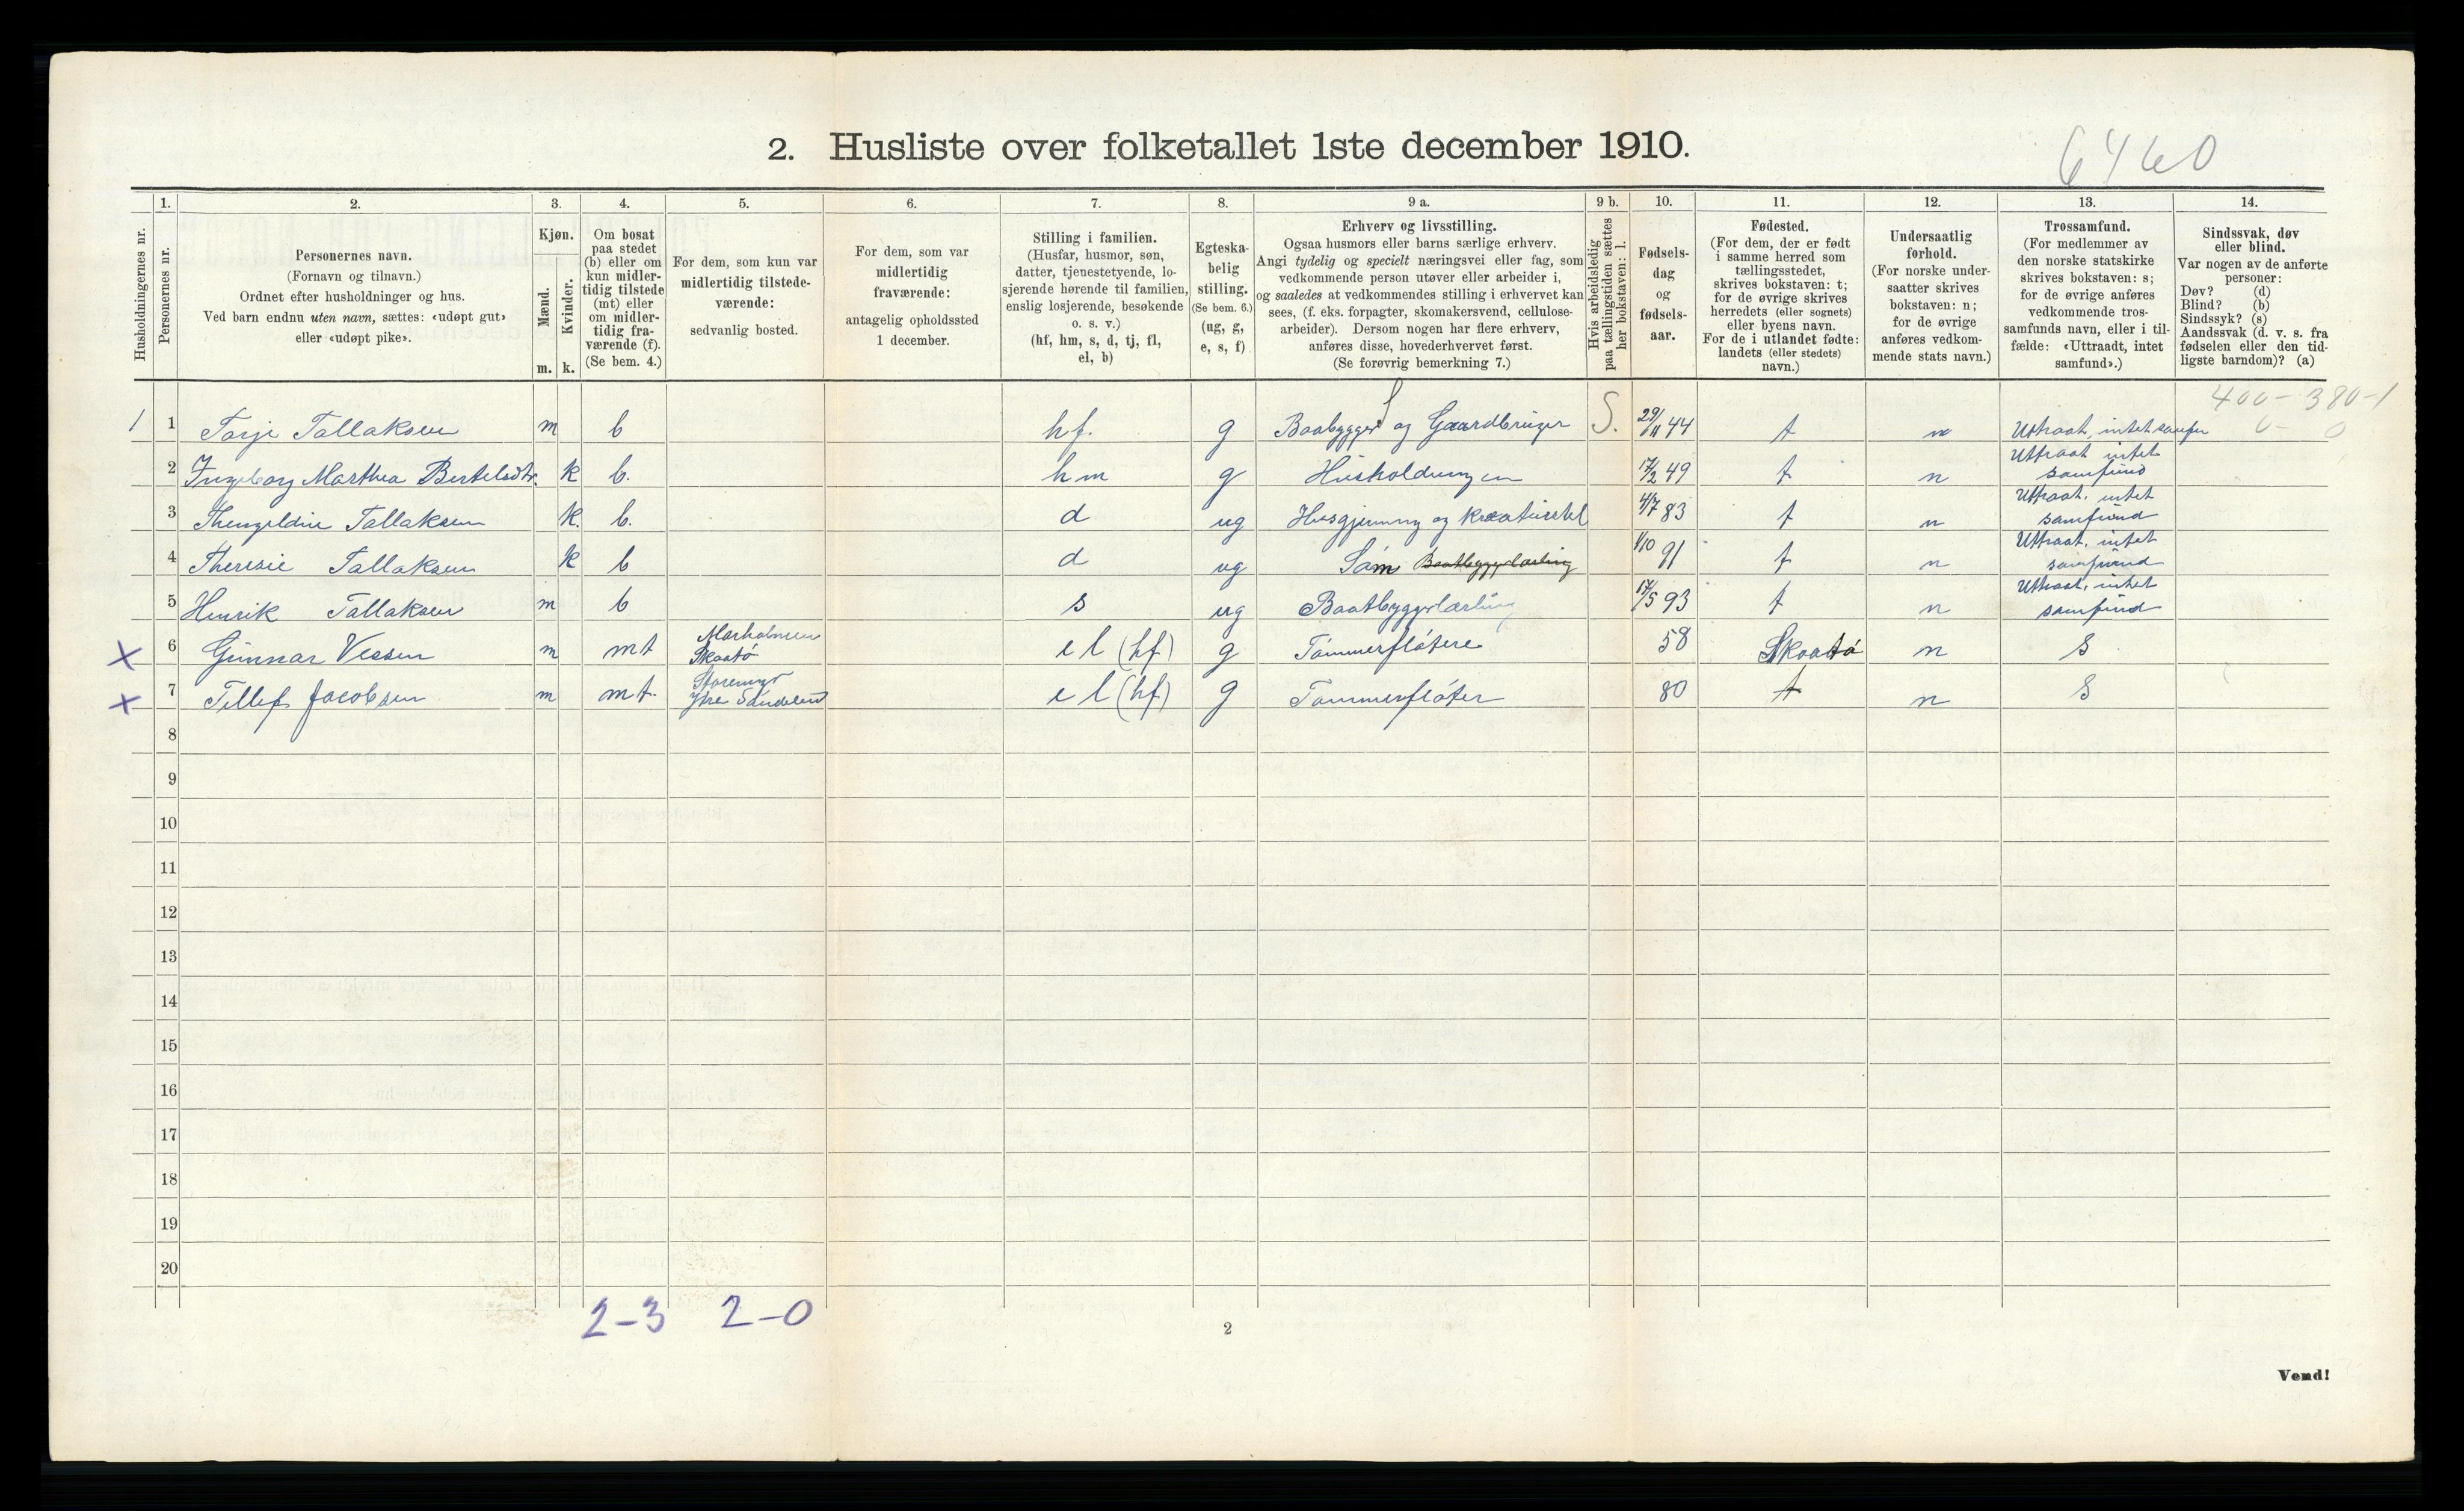 6460
2. Husliste over folketallet 1ste december 1910.
Husholdningernes nr.
1. Personernes nr.
2. Personernes navn. (Fornavn og tilnavn.) Ordnet efter husholdninger og hus. Ved barn endnu uten navn, sættes: «udøpt gut» eller «udøpt pike».
3. Kjøn. Mænd. m. Kvinder. k.
4. Om bosat paa stedet (b) eller om kun midlertidig tilstede (mt) eller om midlertidig fraværende (f). (Se bem. 4.)
5. For dem, som kun var midlertidig tilstedeværende: sedvanlig bosted.
6. For dem, som var midlertidig fraværende: antagelig opholdssted 1 december.
7. Stilling i familien. (Husfar, husmor, søn, datter, tjenestetyende, losjerende hørende til familien, enslig losjerende, besøkende o. s. v.) (hf, hm, s, d, tj, fl, el, b)
8. Egteskabelig stilling. (Se bem. 6.) (ug, g, e, s, f)
9 a. Erhverv og livsstilling. Ogsaa husmors eller barns særlige erhverv. Angi tydelig og specielt næringsvei eller fag, som vedkommende person utøver eller arbeider i, og saaledes at vedkommendes stilling i erhvervet kan sees, (f. eks. forpagter, skomakersvend, cellulosearbeider). Dersom nogen har flere erhverv, anføres disse, hovederhvervet først. (Se forøvrig bemerkning 7.)
9 b. Hvis arbeidsledig paa tællingstiden sættes her bokstaven: l.
10. Fødselsdag og fødselsaar.
11. Fødested. (For dem, der er født i samme herred som tællingsstedet, skrives bokstaven: t; for de øvrige skrives herredets (eller sognets) eller byens navn. For de i utlandet fødte: landets (eller stedets) navn.)
12. Undersaatlig forhold. (For norske undersaatter skrives bokstaven: n; for de øvrige anføres vedkommende stats navn.)
13. Trossamfund. (For medlemmer av den norske statskirke skrives bokstaven: s; for de øvrige anføres vedkommende trossamfunds navn, eller i tilfælde: «Uttraadt, intet samfund».)
14. Sindssvak, døv eller blind. Var nogen av de anførte personer: Døv? (d) Blind? (b) Sindssyk? (s) Aandssvak (d. v. s. fra fødselen eller den tidligste barndom)? (a)
400-380-1
0- 0
1 1 Tarje Tallaksen m b hf. g Baabygger og Gaardbruger S. 29/11 44 t n Utraat, intet samfu
2 Ingeborg Marthea Bertelsdtr. k b. hm g Husholdningen 17/2 49 t n Uttraat intet samfund
3 Thengeldine Tallaksen k. b. d ug Husgjerning og Kreaturstel 4/7 83 t n Uttraat. intet samfund
4 Theresie Tallaksen k b d ug Søm Baatbyggerlærling 1/10 91 t n Uttraat. intet samfund
5 Henrik Tallaksen m b s ug Baatbyggerlærling 17/5 93 t n Uttraat, intet samfund
x 6 Gunnar Vessen m mt Marholmen Skaatø el (hf) g Tømmerfløtere 58 Skaatø n S
x 7 Tellef Jacobsen m mt. Storemyr Ytre Søndeled el (hf) g Tømmerfløter 80 t n S
8
9
10
11
12
13
14
15
16
17
18
19
20
2-3 2-0
2
Vend!